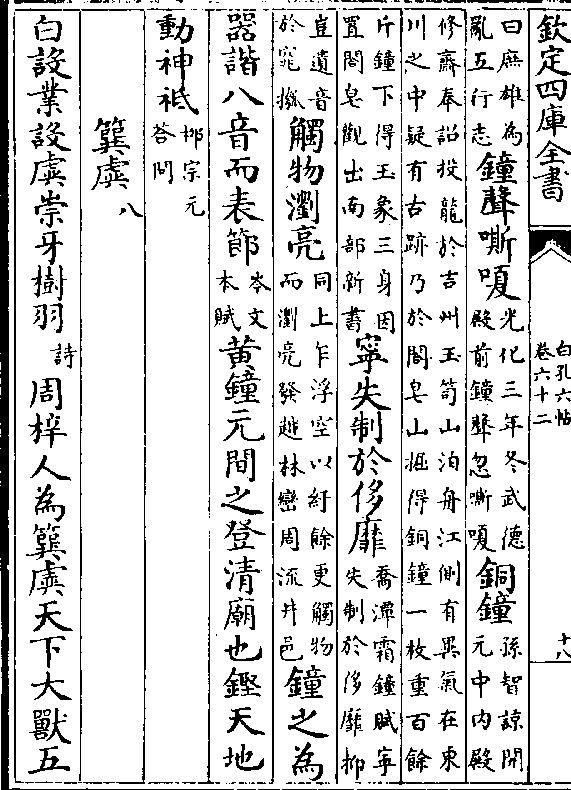 欽定四庫全書
白孔六帖
卷六十二
十八
曰庶雄為
亂五行志
鐘聲嘶嗄
光化三年冬武德
殿前鐘聲忽嘶嗄
銅鐘
孫智諒開
元中内殿
修齋奉詔投龍於吉州玉笥山泊舟江側有異氣在東
川之中疑有古跡乃於閤皂山掘得銅鐘一枚重百餘
斤鐘下得玉象三身因
置閤皂觀出南部新書
寧失制於侈靡
喬潭霜鐘賦寧
失制於侈靡抑
豈遺音
於窕摦
觸物瀏亮
同上乍浮空以紆餘更觸物
而瀏亮發越林巒周流井邑
鐘之為
器諧八音而表節
岑文
本賦
黃鐘元間之登清廟也鏗天地
動神祗
柳宗元
答問
簨虡八
白設業設虡崇牙樹羽詩周梓人為簨虡天下大獸五